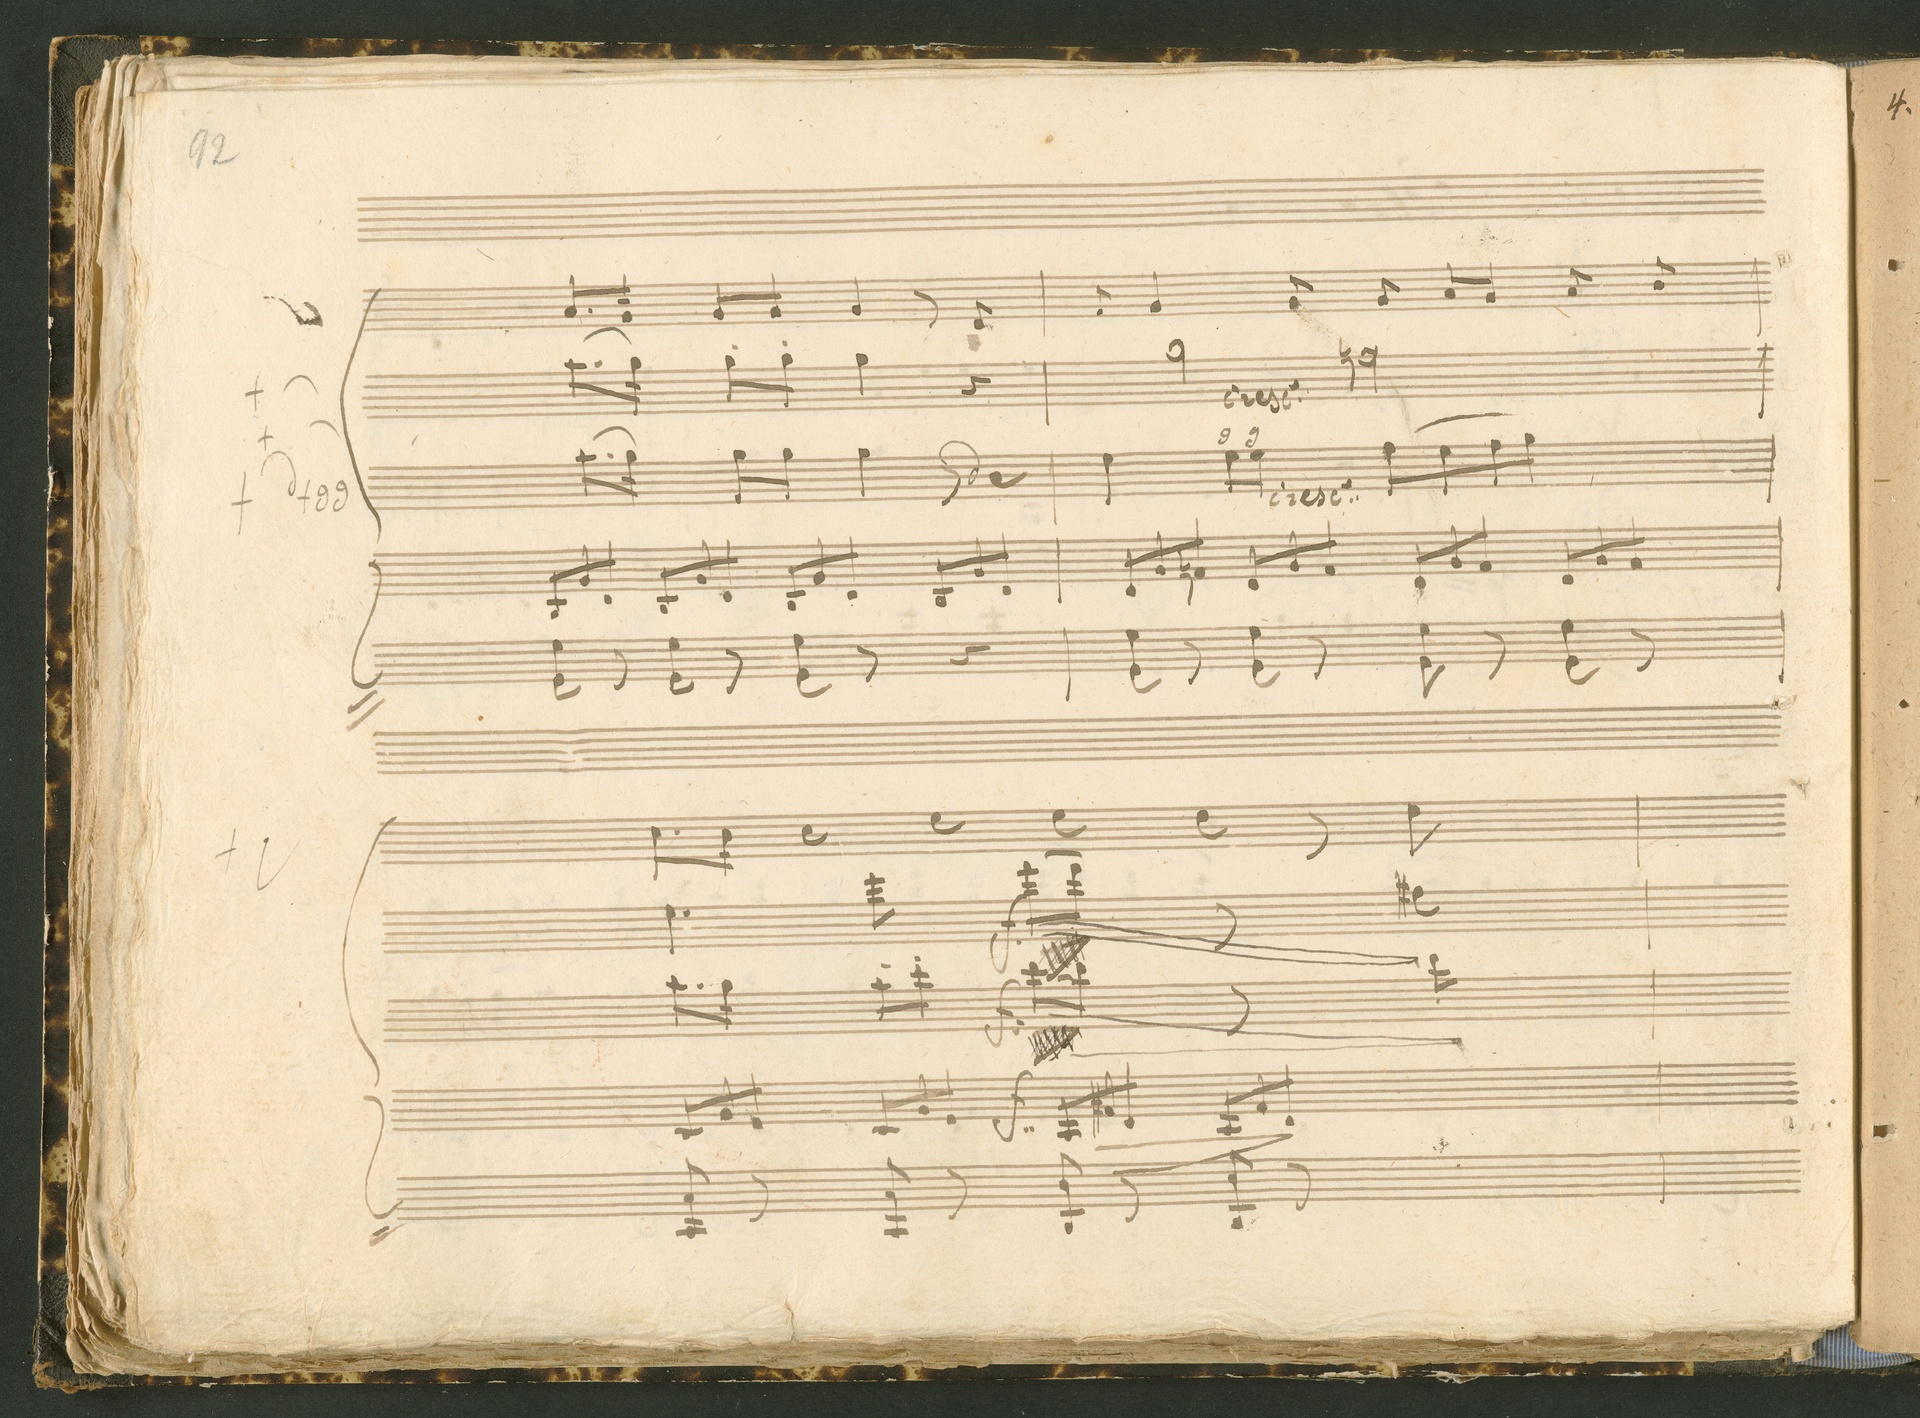 92
4.
cresc.
g g
cresc.
+
+
+ +gg
+
f.
f.
f.